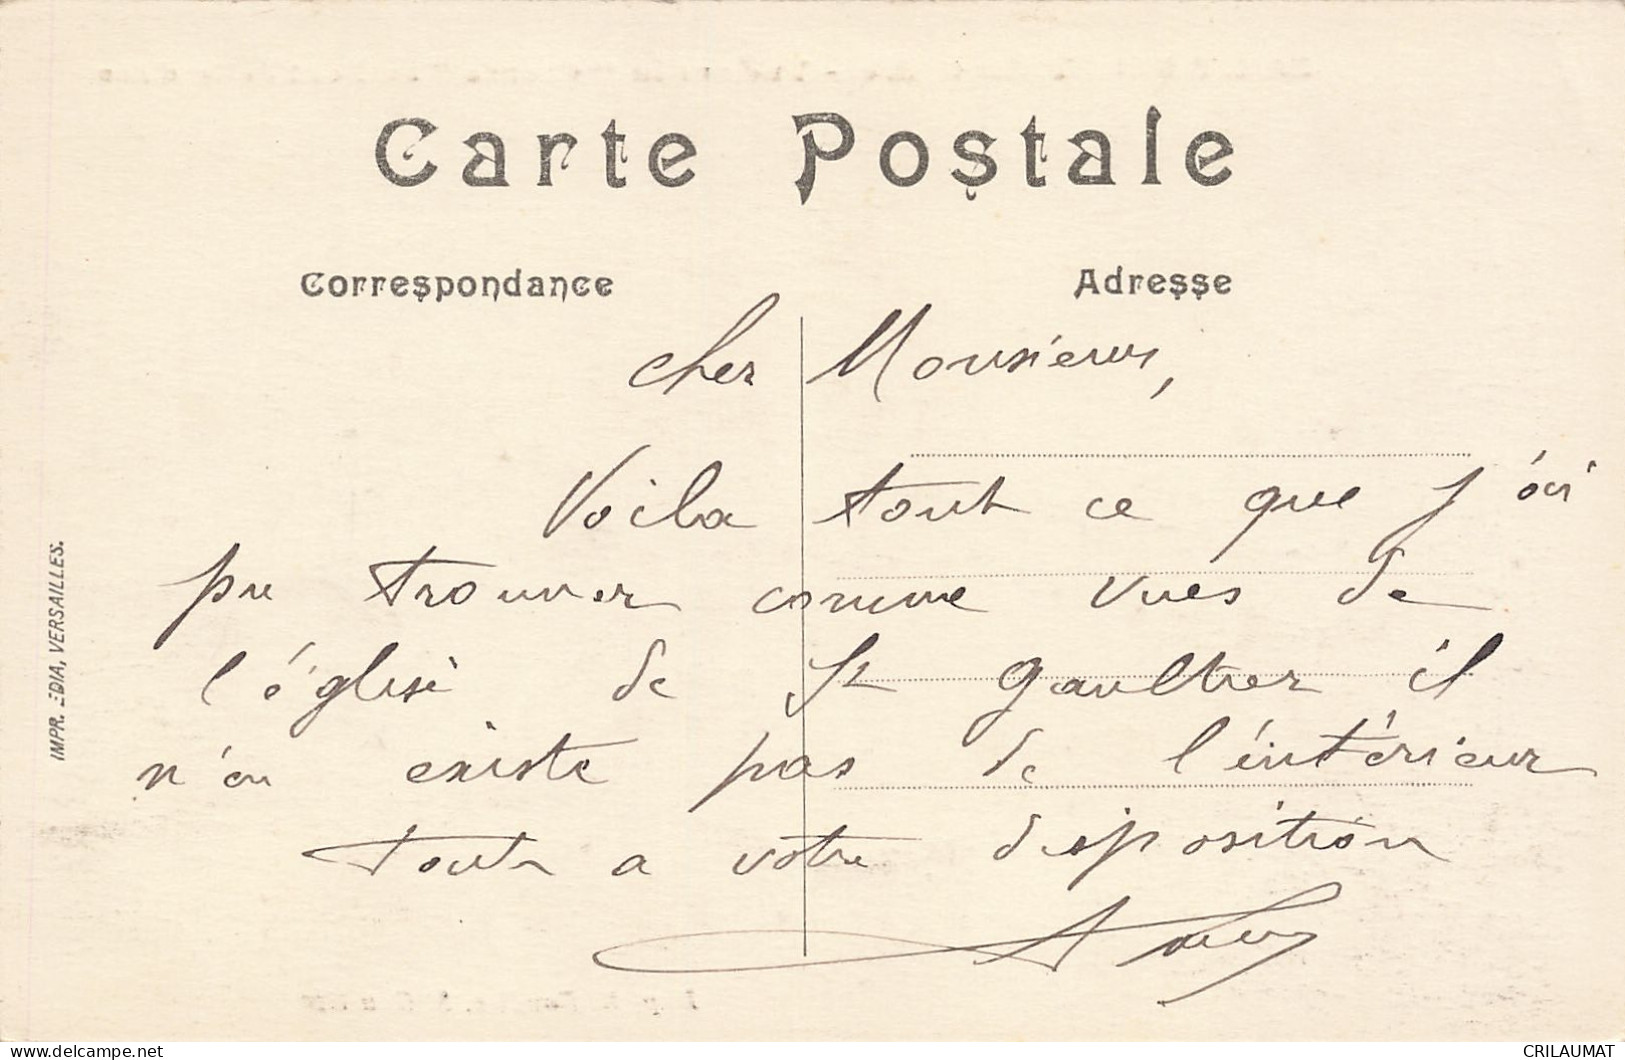 Carte Postale
Correspondance Adresse
cher Monsieur,
Voila tout ce que j'ai
pu trouver comme vues de
l'églisé de St Gaultier il
n'en existe pas de l'intérieur
Tout a votre disposition
IMPR. EDIA, VERSAILLES.
CRILAUMAT